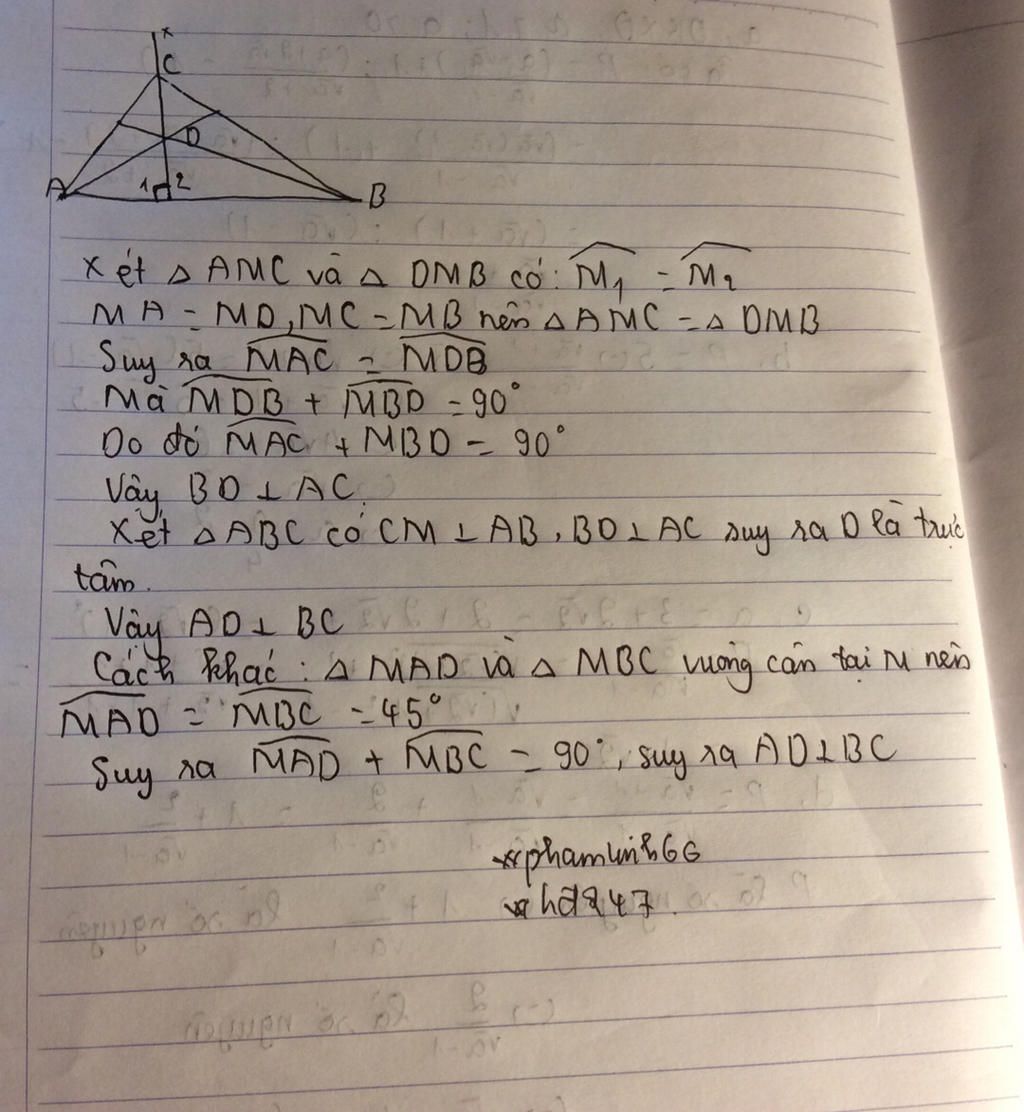 x
C
D
A 1 2 B
Xét △ AMC và △ DMB có: M̂₁ = M̂₂
MA = MD, MC = MB nên △ AMC = △ DMB
Suy ra MAC = MDB
Mà MDB + MBD = 90°
Do đó MAC + MBD = 90°
Vậy BD ⊥ AC.
Xét △ ABC có CM ⊥ AB, BD ⊥ AC suy ra D là trực
tâm.
Vậy AD ⊥ BC
Cách khác: △ MAD và △ MBC vuông cân tại M nên
MAD = MBC = 45°
Suy ra MAD + MBC = 90°, suy ra AD ⊥ BC